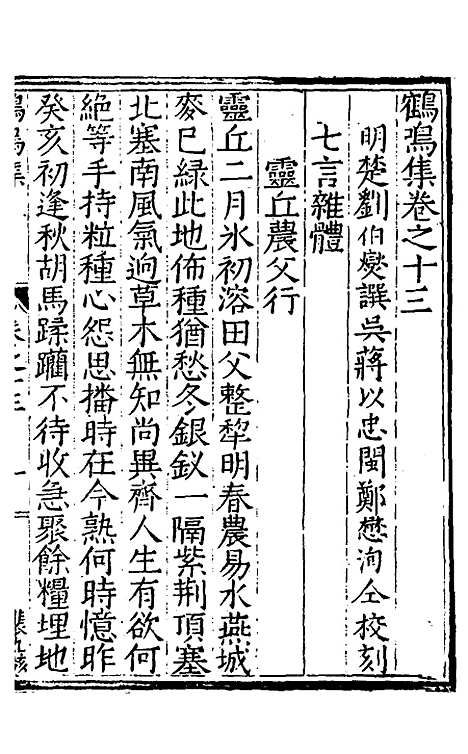 鶴鳴集卷之十三
明楚劉伯燮譔吳蔣以忠閩鄭懋洵仝校刻
七言雜體
靈丘農父行
靈丘二月氷初溶田父整犂明春農易水燕城
麥已綠此地佈種猶愁冬銀釵一隔紫荆頂塞
北塞南風氣逈草木無知尚異齊人生有欲何
絶等手持粒種心怨思播時在今熟何時憶昨
癸亥初逢秋胡馬蹂躪不待收急聚餘糧埋地